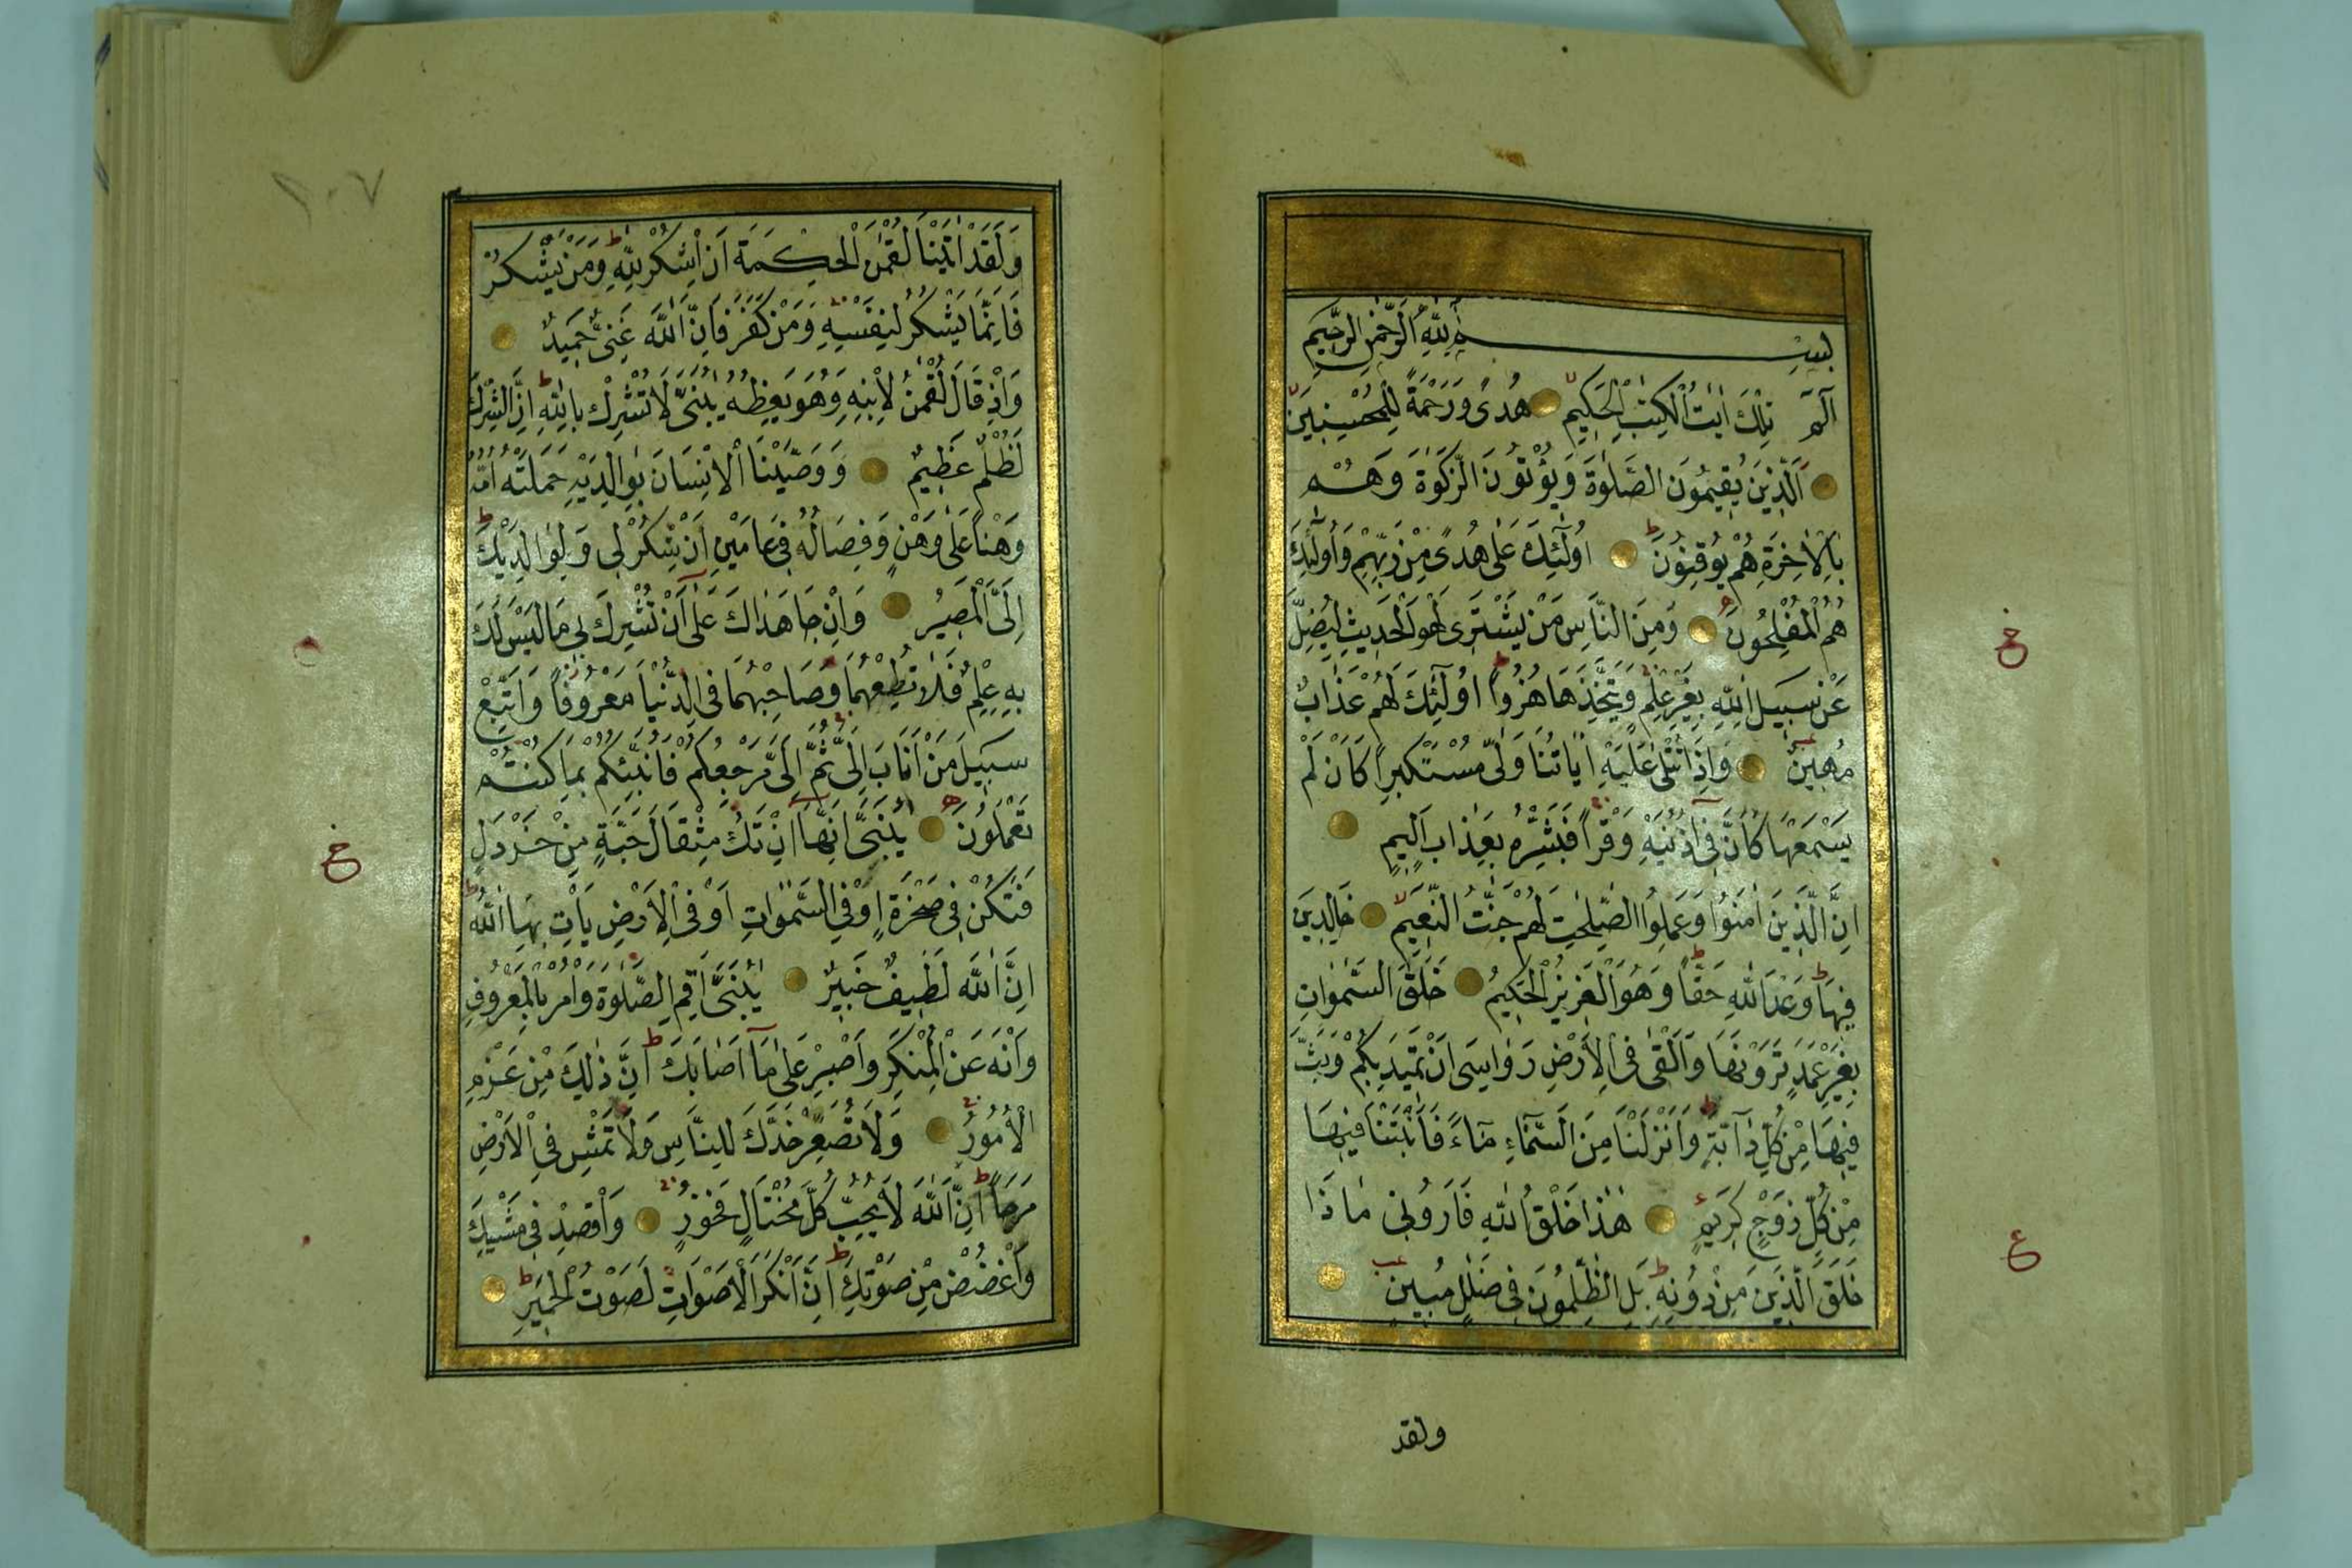 بِسْمِ اللّٰهِ الرَّحْمٰنِ الرَّحِيمِ
الٓمٓ تِلْكَ اٰيَاتُ الْكِتٰبِ الْحَكِيمِ هُدًى وَرَحْمَةً لِلْمُحْسِنِينَ
اَلَّذِينَ يُقِيمُونَ الصَّلٰوةَ وَيُؤْتُونَ الزَّكٰوةَ وَهُمْ
بِالْاٰخِرَةِ هُمْ يُوقِنُونَ اُولٰٓئِكَ عَلٰى هُدًى مِنْ رَبِّهِمْ وَاُولٰٓئِكَ
هُمُ الْمُفْلِحُونَ وَمِنَ النَّاسِ مَنْ يَشْتَرِى لَهْوَ الْحَدِيثِ لِيُضِلَّ
عَنْ سَبِيلِ اللّٰهِ بِغَيْرِ عِلْمٍ وَيَتَّخِذَهَا هُزُوًا اُولٰٓئِكَ لَهُمْ عَذَابٌ
مُهِينٌ وَاِذَا تُتْلٰى عَلَيْهِ اٰيَاتُنَا وَلّٰى مُسْتَكْبِرًا كَاَنْ لَمْ
يَسْمَعْهَا كَاَنَّ فِى اُذُنَيْهِ وَقْرًا فَبَشِّرْهُ بِعَذَابٍ اَلِيمٍ
اِنَّ الَّذِينَ اٰمَنُوا وَعَمِلُوا الصّٰلِحٰتِ لَهُمْ جَنّٰتُ النَّعِيمِ خَالِدِينَ
فِيهَا وَعْدَ اللّٰهِ حَقًّا وَهُوَ الْعَزِيزُ الْحَكِيمُ خَلَقَ السَّمٰوَاتِ
بِغَيْرِ عَمَدٍ تَرَوْنَهَا وَاَلْقٰى فِى الْاَرْضِ رَوَاسِىَ اَنْ تَمِيدَ بِكُمْ وَبَثَّ
فِيهَا مِنْ كُلِّ دَآبَّةٍ وَاَنْزَلْنَا مِنَ السَّمَآءِ مَآءً فَاَنْبَتْنَا فِيهَا
مِنْ كُلِّ زَوْجٍ كَرِيمٍ هٰذَا خَلْقُ اللّٰهِ فَاَرُونِى مَا ذَا
خَلَقَ الَّذِينَ مِنْ دُونِهِ بَلِ الظّٰلِمُونَ فِى ضَلٰلٍ مُبِينٍ
ولقد
ع
ع
٢٠٧
وَلَقَدْ اٰتَيْنَا لُقْمٰنَ الْحِكْمَةَ اَنِ اشْكُرْ لِلّٰهِ وَمَنْ يَشْكُرْ
فَاِنَّمَا يَشْكُرُ لِنَفْسِهِ وَمَنْ كَفَرَ فَاِنَّ اللّٰهَ غَنِىٌّ حَمِيدٌ
وَاِذْ قَالَ لُقْمٰنُ لِابْنِهِ وَهُوَ يَعِظُهُ يٰبُنَىَّ لَا تُشْرِكْ بِاللّٰهِ اِنَّ الشِّرْكَ
لَظُلْمٌ عَظِيمٌ وَوَصَّيْنَا الْاِنْسَانَ بِوَالِدَيْهِ حَمَلَتْهُ اُمُّهُ
وَهْنًا عَلٰى وَهْنٍ وَفِصَالُهُ فِى عَامَيْنِ اَنِ اشْكُرْ لِى وَلِوَالِدَيْكَ
اِلَىَّ الْمَصِيرُ وَاِنْ جَاهَدَاكَ عَلٰٓى اَنْ تُشْرِكَ بِى مَا لَيْسَ لَكَ
بِهِ عِلْمٌ فَلَا تُطِعْهُمَا وَصَاحِبْهُمَا فِى الدُّنْيَا مَعْرُوفًا وَاتَّبِعْ
سَبِيلَ مَنْ اَنَابَ اِلَىَّ ثُمَّ اِلَىَّ مَرْجِعُكُمْ فَاُنَبِّئُكُمْ بِمَا كُنْتُمْ
تَعْمَلُونَ يٰبُنَىَّ اِنَّهَا اِنْ تَكُ مِثْقَالَ حَبَّةٍ مِنْ خَرْدَلٍ
فَتَكُنْ فِى صَخْرَةٍ اَوْ فِى السَّمٰوَاتِ اَوْ فِى الْاَرْضِ يَاْتِ بِهَا اللّٰهُ
اِنَّ اللّٰهَ لَطِيفٌ خَبِيرٌ يٰبُنَىَّ اَقِمِ الصَّلٰوةَ وَاْمُرْ بِالْمَعْرُوفِ
وَانْهَ عَنِ الْمُنْكَرِ وَاصْبِرْ عَلٰى مَآ اَصَابَكَ اِنَّ ذٰلِكَ مِنْ عَزْمِ
الْاُمُورِ وَلَا تُصَعِّرْ خَدَّكَ لِلنَّاسِ وَلَا تَمْشِ فِى الْاَرْضِ
مَرَحًا اِنَّ اللّٰهَ لَا يُحِبُّ كُلَّ مُخْتَالٍ فَخُورٍ وَاقْصِدْ فِى مَشْيِكَ
وَاغْضُضْ مِنْ صَوْتِكَ اِنَّ اَنْكَرَ الْاَصْوَاتِ لَصَوْتُ الْحَمِيرِ